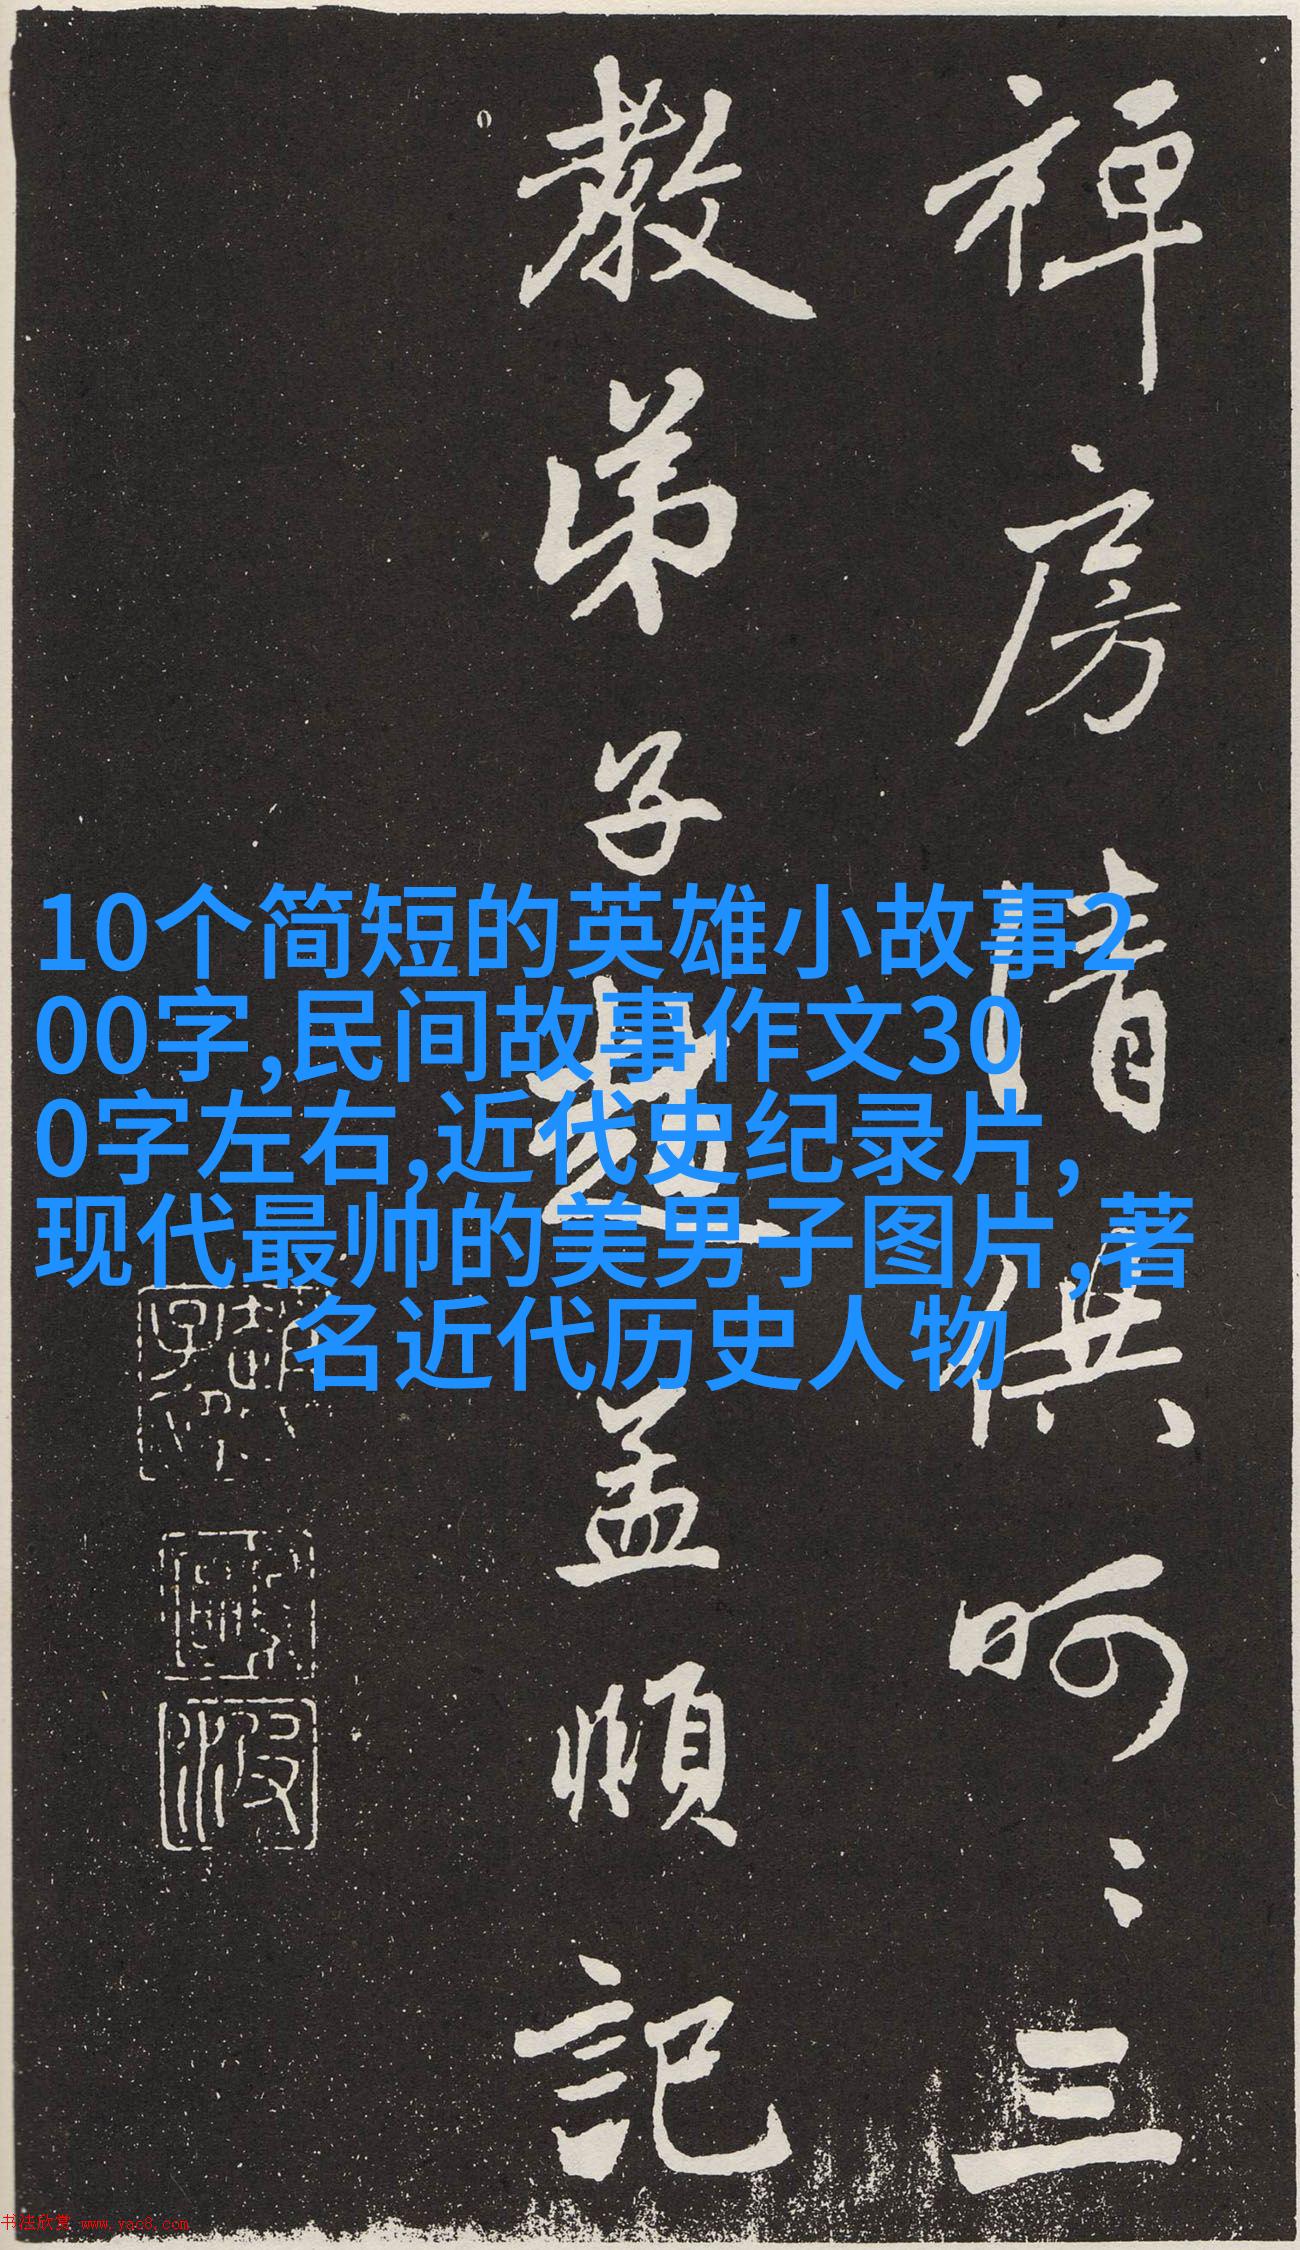 10个简短的英雄小故事2
00字,民间故事作文30
0字左右,近代史纪录片,
现代最帅的美男子图片,著
名近代历史人物
禅房清供呵〻三
教弟子趙孟頫記
书法欣赏 www.yac8.com